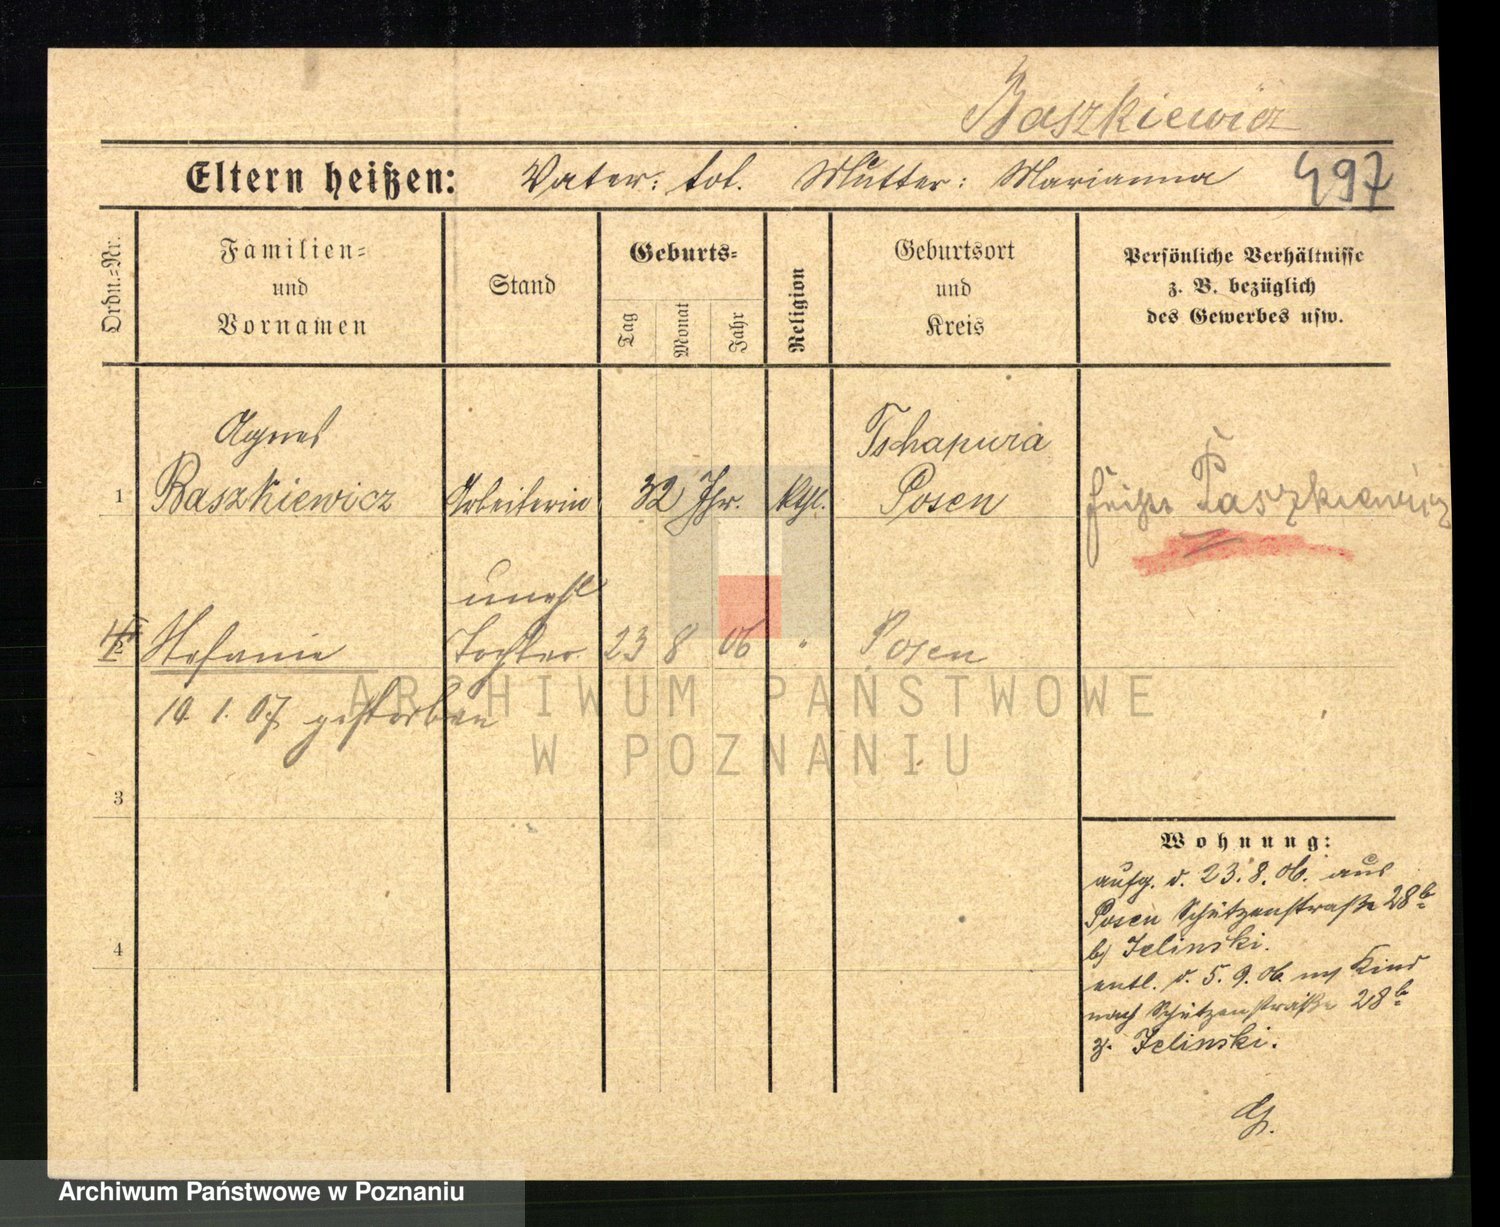 Baszkiewicz
Eltern heißen: Vater: tot. Mutter: Marianna 497
Ordn.=Nr.
Familien=
und
Vornamen
Stand
Geburts=
Tag
Monat
Jahr
Religion
Geburtsort
und
Kreis
Persönliche Verhältnisse
z. B. bezüglich
des Gewerbes usw.
1
Agnes
Baszkiewicz
Arbeiterin
32 Jhr.
kthl.
Tschapura
Posen
heißt Paszkiewicz
2
Stefanie
unehl
Tochter
23 8 06
Posen
19. 1. 07 gestorben
3
4
Wohnung:
aufg. d. 23. 8. 06. aus
Posen Schützenstraße 28b
b/ Jelinski.
entl. d. 5. 9. 06. m/ Kind
nach Schützenstraße 28b
z. Jelinski.
ARCHIWUM PAŃSTWOWE
W POZNANIU
Archiwum Państwowe w Poznaniu